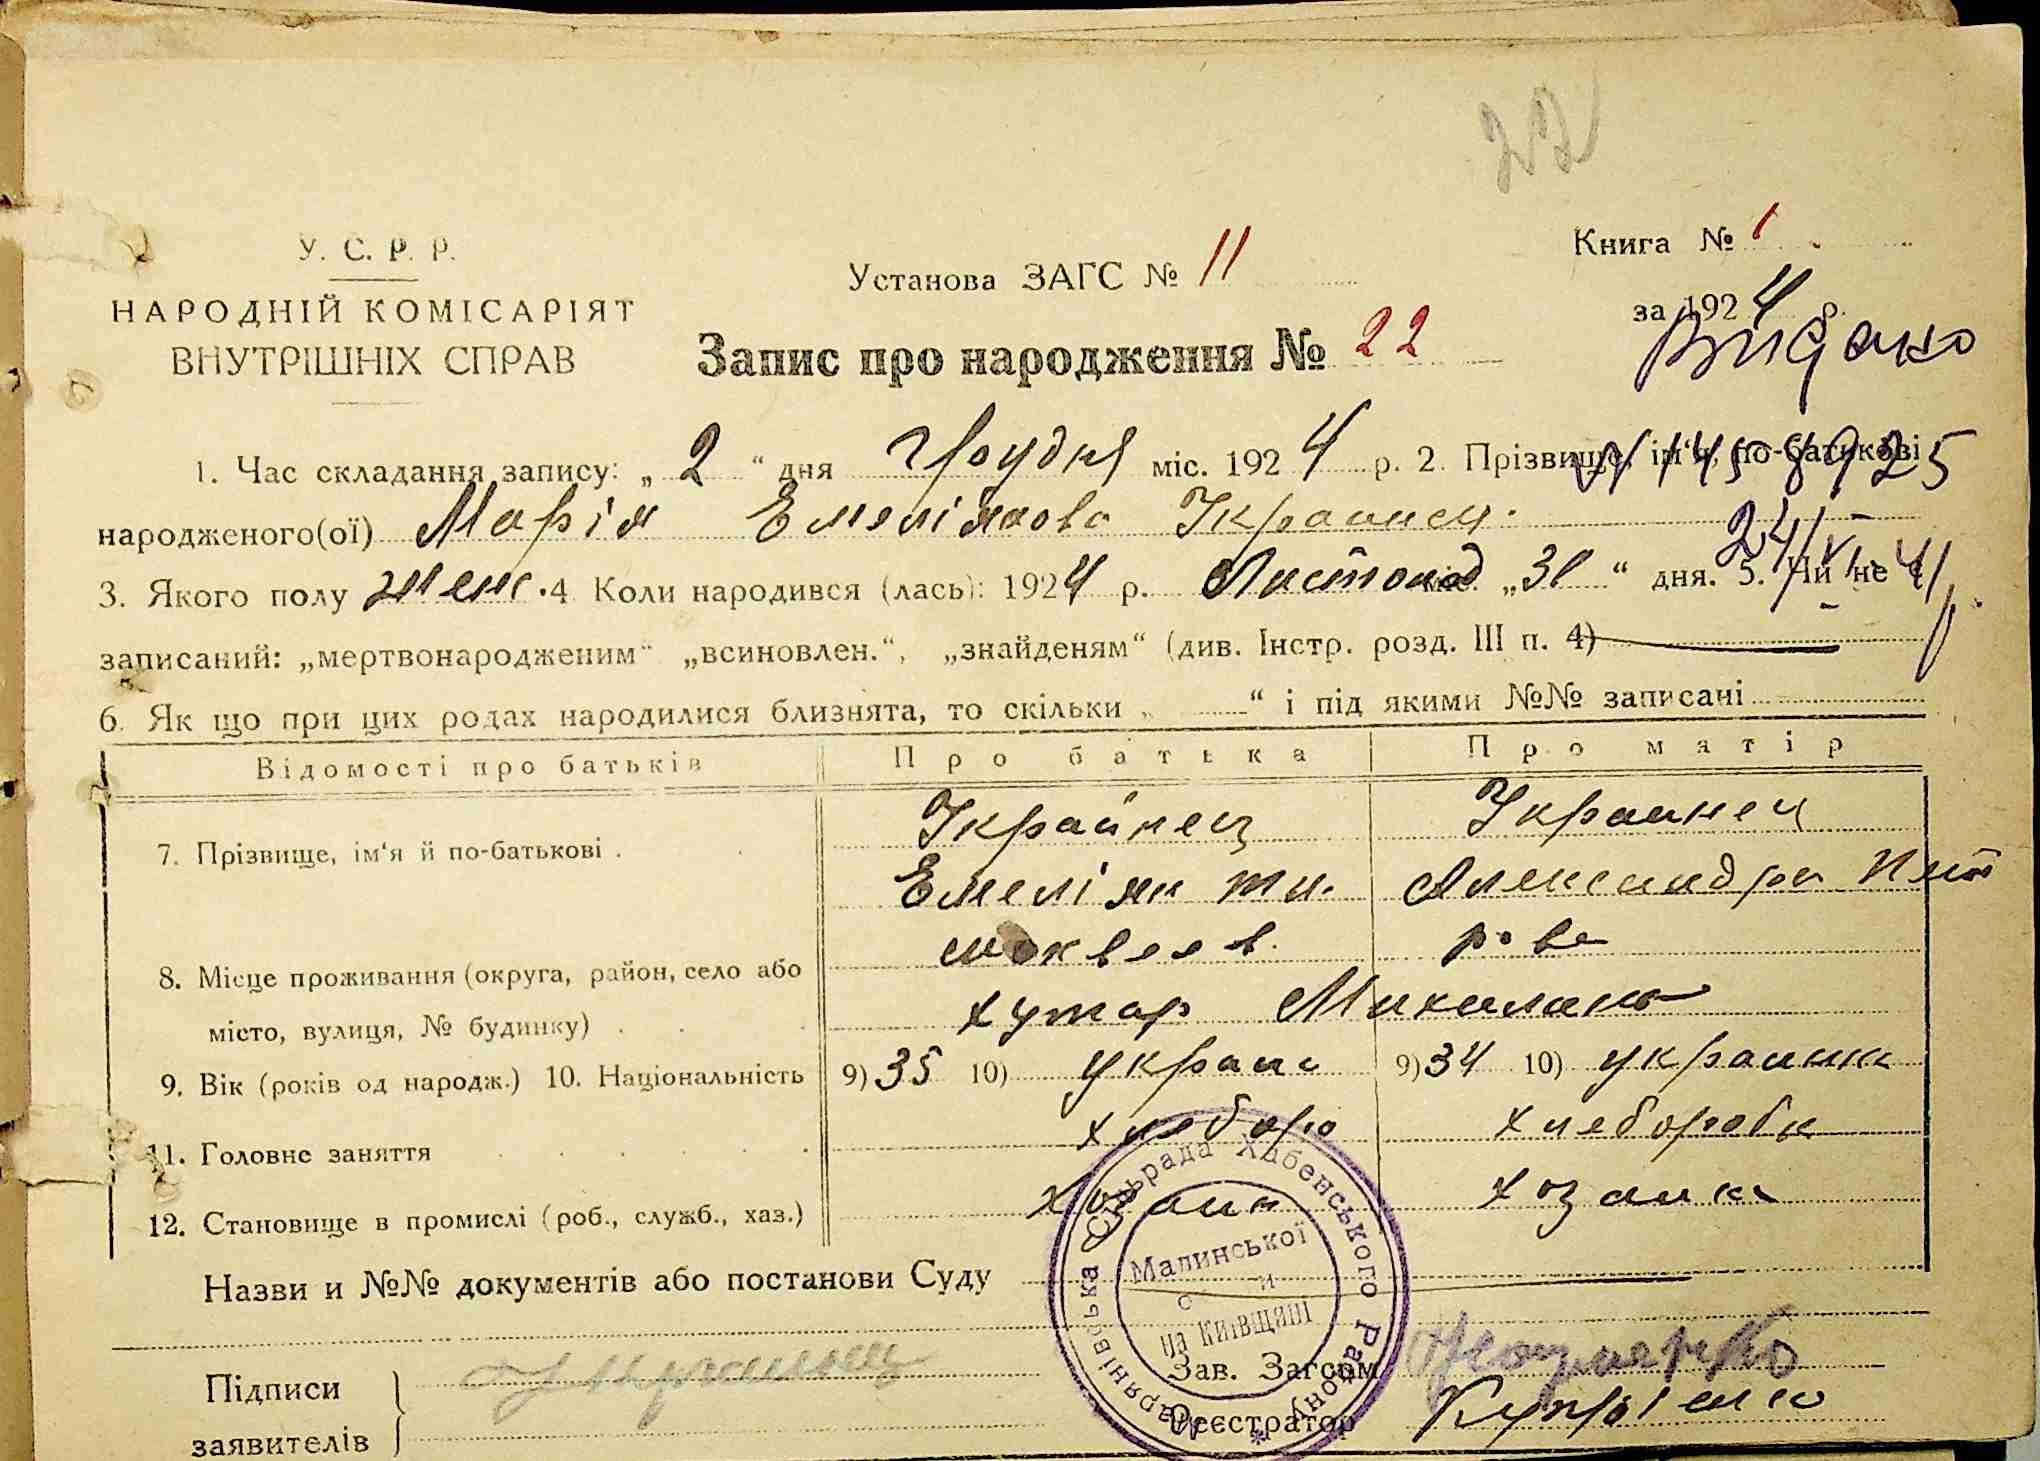 22
У. С. Р. Р.
НАРОДНІЙ КОМІСАРІЯТ
ВНУТРІШНІХ СПРАВ
Установа ЗАГС № 11
Книга № 1
за 1924 р.
Запис про народження № 22
Видано
1. Час складання запису: „ 2 “ дня Грудня міс. 1924 р. 2. Прізвище, ім'я, по-батькові
народженого(ої) Марія Емеліянова Украинец
24/VI 41 р.
3. Якого полу жен. 4 Коли народився (лась): 1924 р. Листопад міс. „30“ дня. 5. Чи не є
записаний: „мертвонародженим“ „всиновлен.“, „знайденям“ (див. Інстр. розд. III п. 4)
6. Як що при цих родах народилися близнята, то скільки „ “ і під якими №№ записані
Відомості про батьків Про батька Про матір
7. Прізвище, ім'я й по-батькові . Украйнец Украинец
Емеліян Александра Пет
рова
8. Місце проживання (округа, район, село або
місто, вулиця, № будинку) . хутор
9. Вік (років од народж.) 10. Національність 9) 35 10) украи 9) 34 10) украинк
11. Головне заняття хлеборо хлебороби
12. Становище в промислі (роб., служб., хаз.) хозаин хозаика
Назви и №№ документів або постанови Суду
Сільрада Хабенського Району
Малинської
на Київщині
Підписи
заявителів
Украинец
Зав. Загсом
Реєстратор